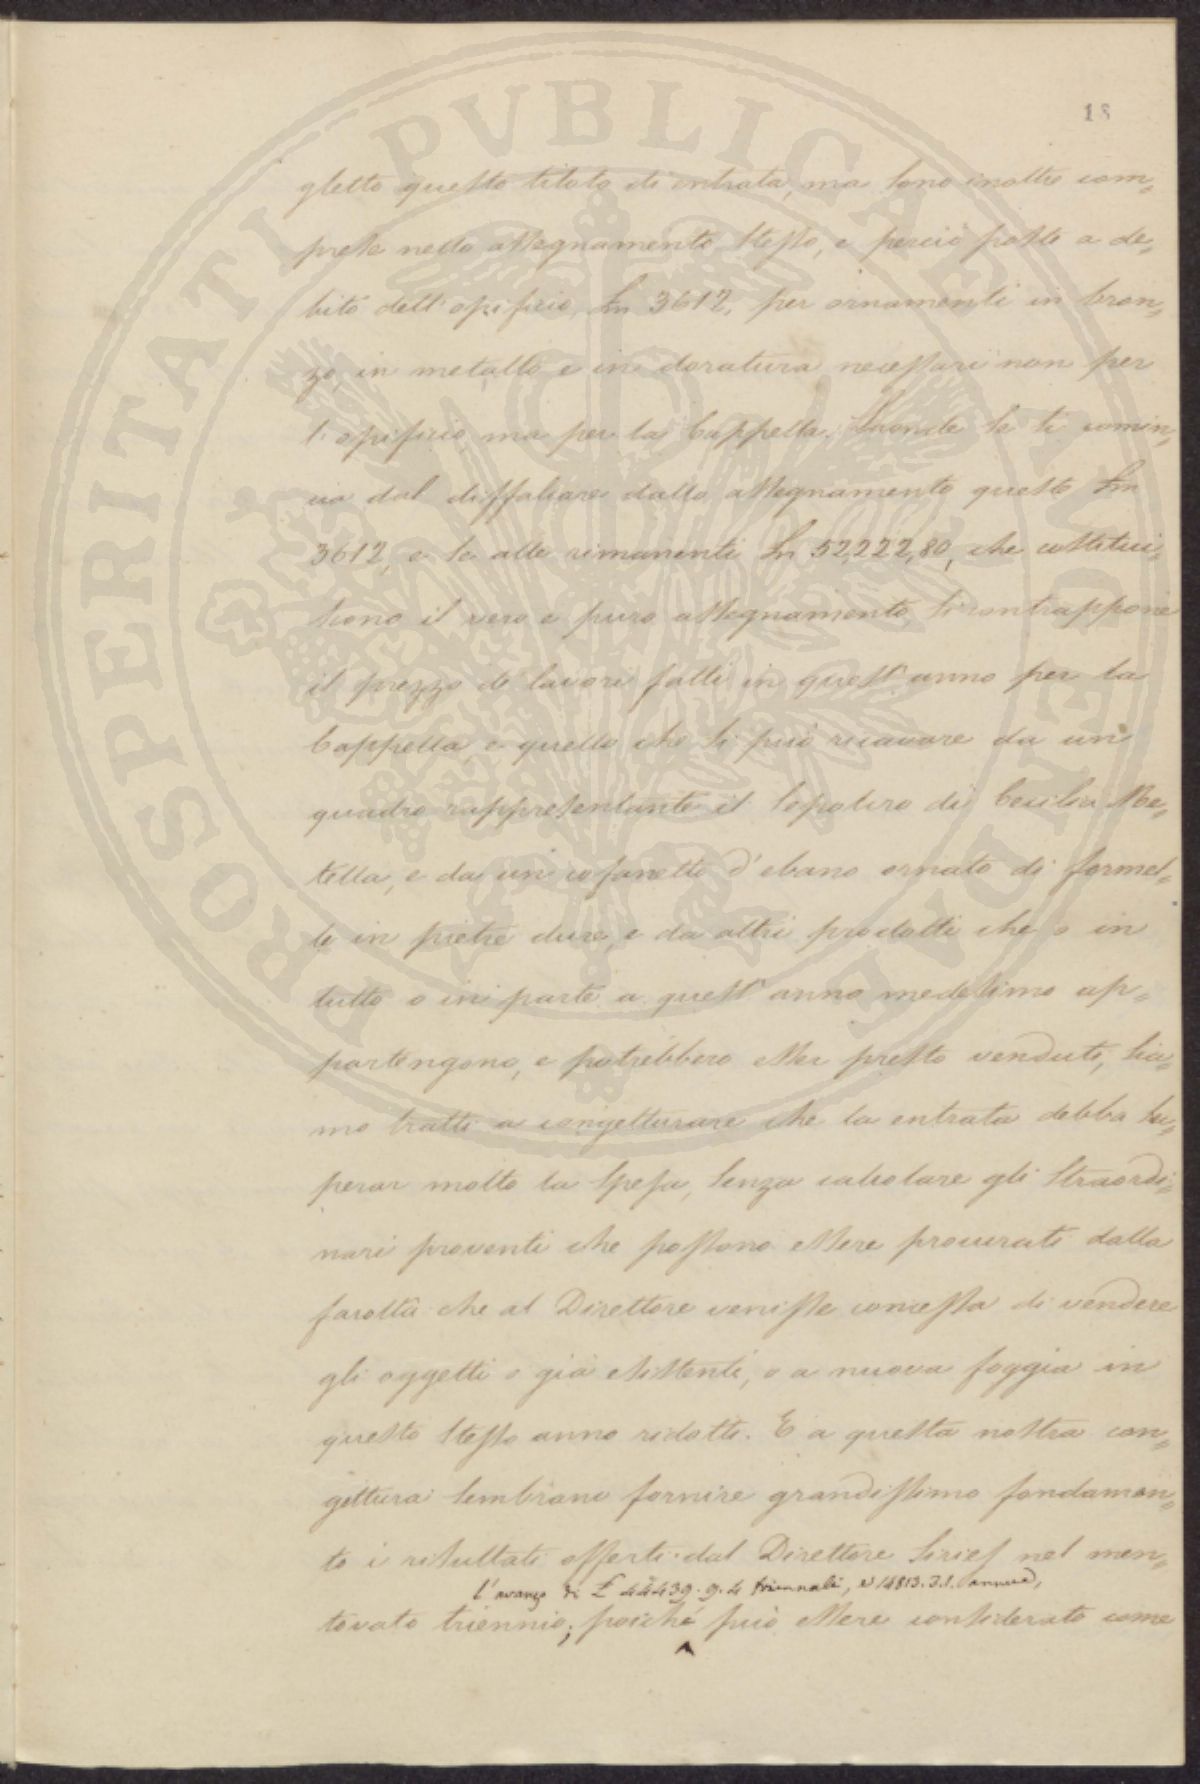 18
gletto questo titolo di entrata, ma sono inoltre com=
prese nello assegnamento stesso, e perciò poste a de=
bito dell'opificio, Ln 3612, per ornamenti in bron=
zo, in metallo e in doratura necessari non per
l'opificio, ma per la Cappella. Laonde se si comin=
cia dal diffalcare dallo assegnamento queste Ln
3612, e se alle rimanenti Ln 52,222,80, che costitui=
scono il vero e puro assegnamento, si contrappone
il prezzo de' lavori fatti in quest'anno per la
Cappella, e quello che si può ricavare da un
quadro rappresentante il sepolcro di Cecilia Me=
tella, e da un cofanetto d'ebano ornato di formel=
le in pietre dure, e da altri prodotti che o in
tutto o in parte a quest'anno medesimo ap=
partengono, e potrebbero esser presto venduti, sia=
mo tratti a congetturare che la entrata debba su=
perar molto la spesa, senza calcolare gli straordi=
nari proventi che possono essere procurati dalla
facoltà che al Direttore venisse concessa di vendere
gli oggetti o già esistenti, o a nuova foggia in
questo stesso anno ridotti. E a questa nostra con=
gettura sembrano fornire grandissimo fondamen=
to i risultati offerti dal Direttore Siries nel men=
l'avanzo di £ 44439.9.4 triennali, e 14813.3.1. annue,
tovato triennio; poichè può essere considerato come
PROSPERITATI PVBLICAE AVGENDAE